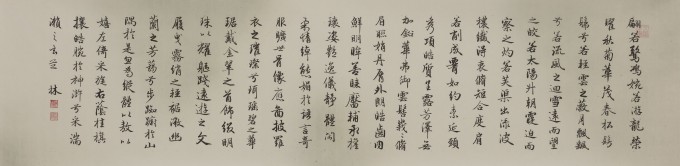 翩若驚鴻婉若游龍榮
曜秋菊華茂春松髣
髴兮若輕雲之蔽月飄飄
兮若流風之迴雪遠而望
之皎若太陽升朝霞迫而
察之灼若芙蕖出淥波
穠纖得衷脩短合度肩
若削成腰如約素延頸
秀項皓質呈露芳澤無
加鉛華弗御雲髻峩峩脩
眉聯娟丹脣外朗皓齒內
鮮明眸善睞靨輔承權
瓌姿豔逸儀靜體閑
柔情綽態媚於語言奇
服曠世骨像應圖披羅
衣之璀璨兮珥瑤碧之華
琚戴金翠之首飾綴明
珠以耀軀踐遠遊之文
履曳霧綃之輕裾微幽
蘭之芳藹兮步踟躕於山
隅於是忽焉縱體以敖以
嬉左倚采旄右蔭桂旗
攘皓腕於神滸兮采湍
瀨之玄芝 林